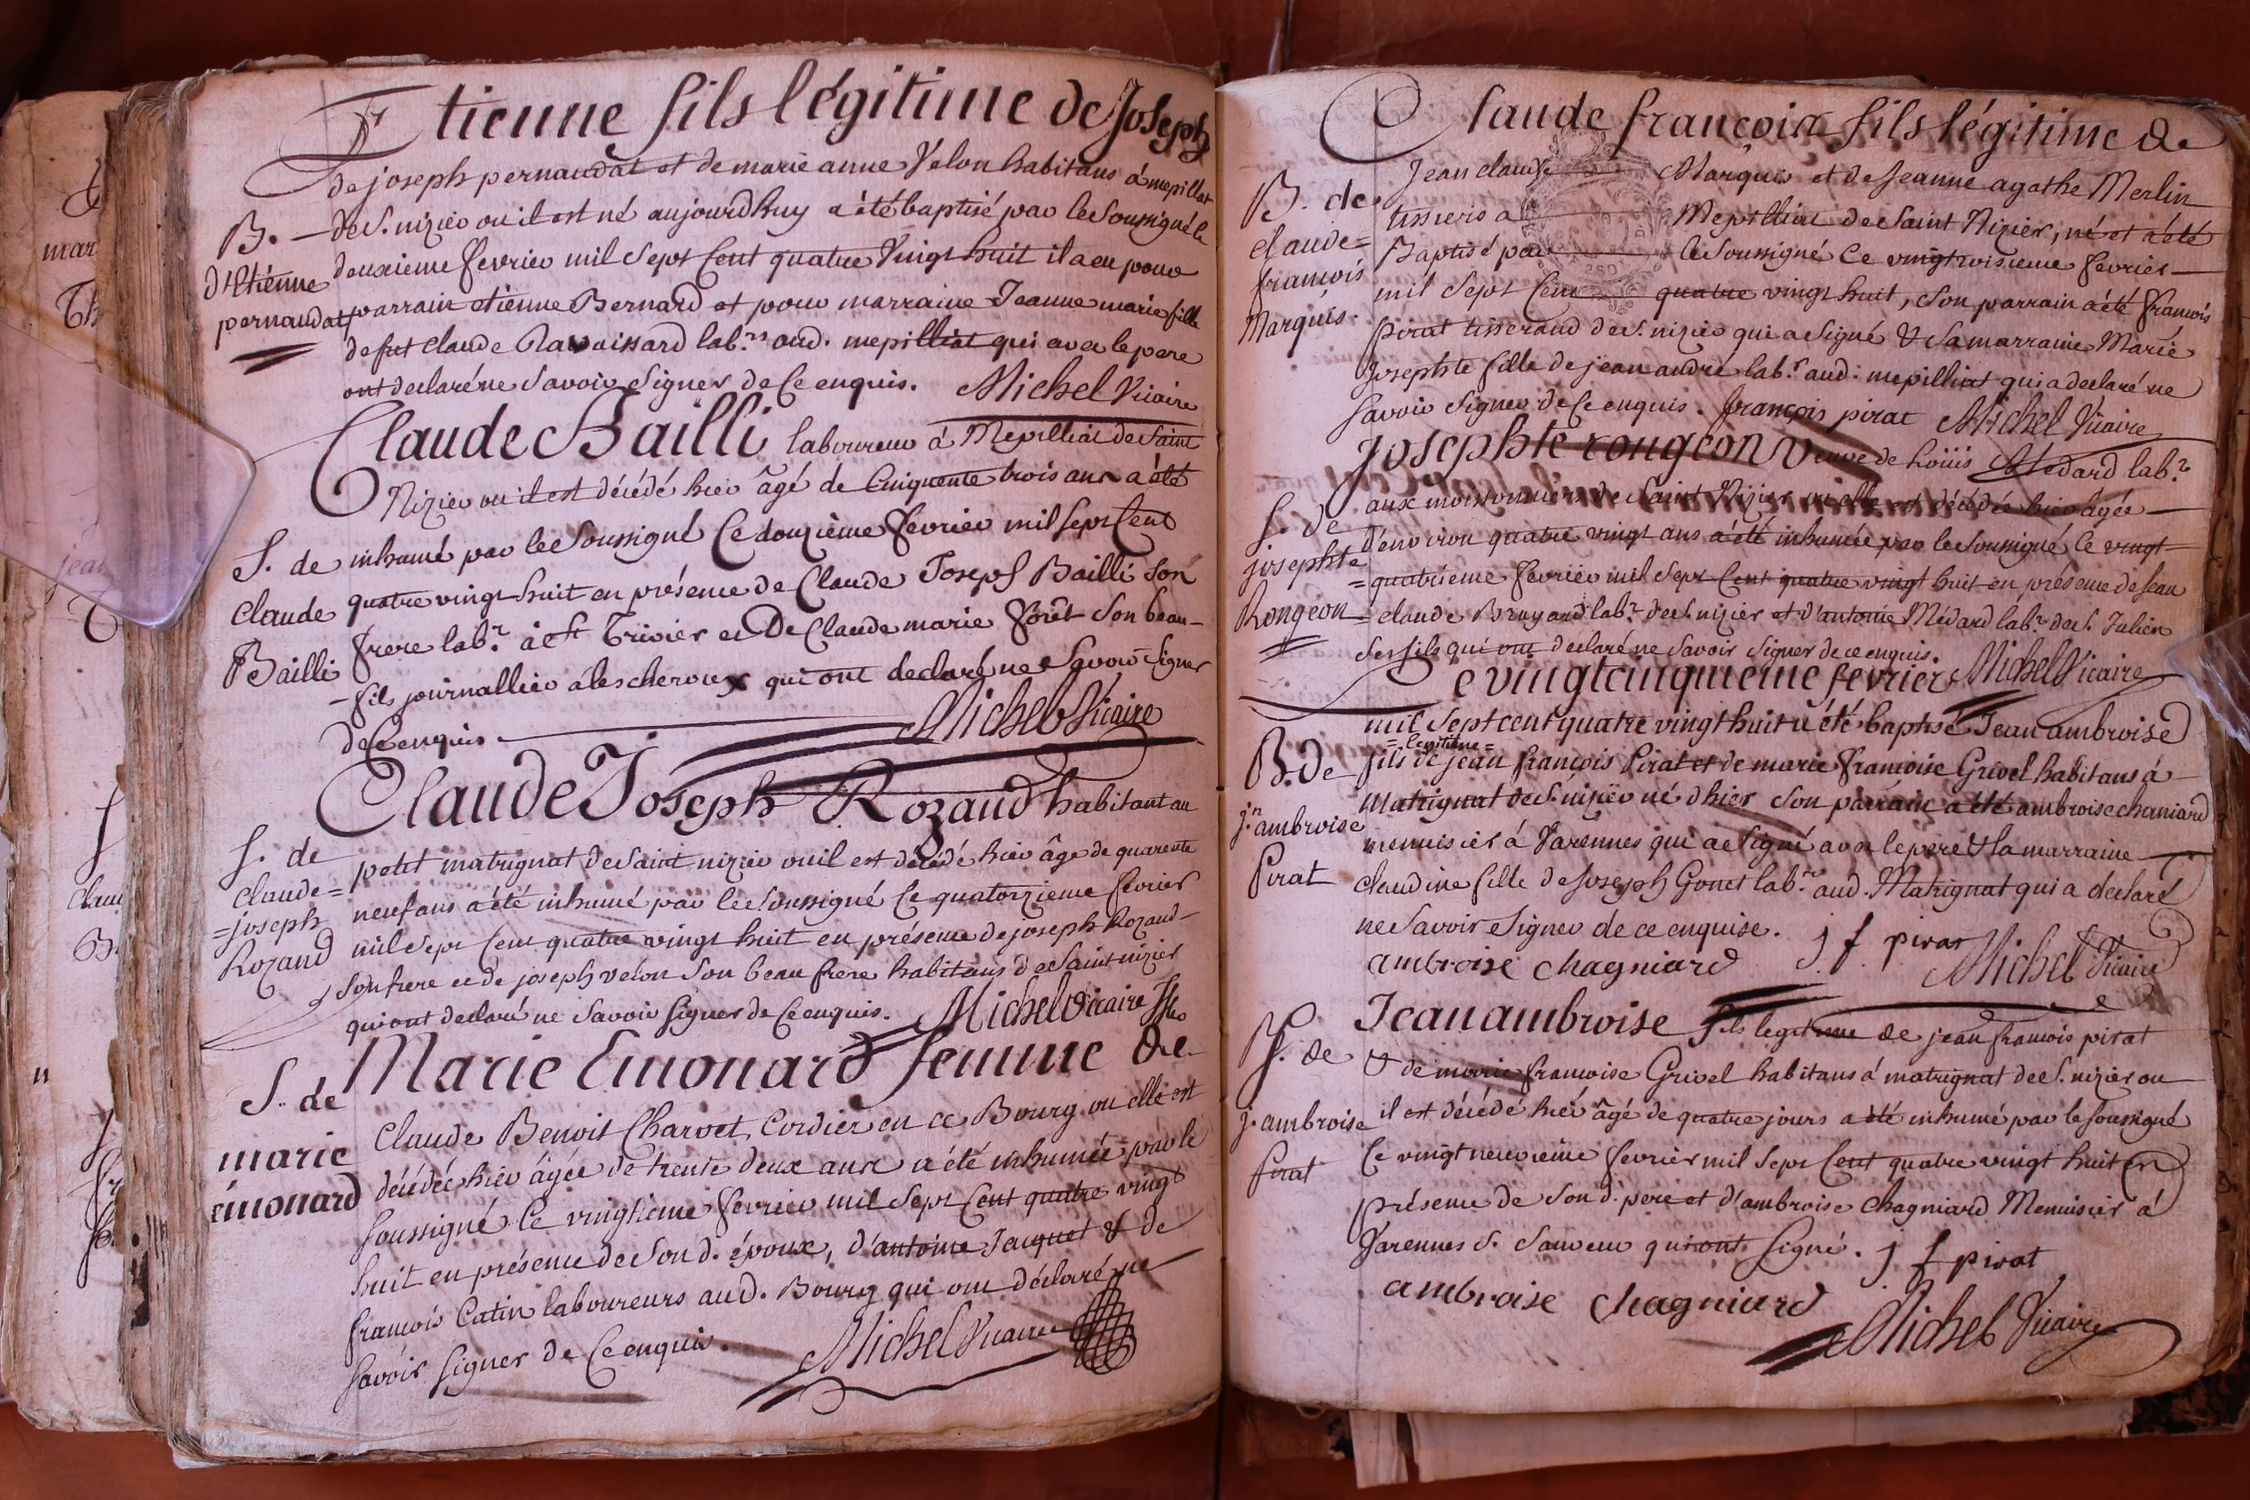 Etienne fils légitime de Joseph
de joseph pernaudat et de marie anne Velon habitans á mepillat
B. — de S. nizier ou il est né aujourdhuy a été baptisé par le Soussigné le
d'Etiénne deuxieme fevrier mil Sept Cent quatre Vingt huit il a eu pour
pernaudat parrain etienne Bernard et pour marraine Jeanne marie fille
de fut claude Ravaissard lab.rs aud. mepilliat qui avec le pere
ont declaré ne Savoir Signer de Ce enquis. Michel Vicaire
Claude Bailli laboureur á Mepilliat de Saint
Nizier ou il est décédé hier âgé de Cinquente trois ans a été
S. de inhumé par le Soussigné Ce douzième fevrier mil Sept Cent
Claude quatre vingt huit en présence de Claude Joseph Bailli Son
frere lab.r à St Trivier et De Claude marie forêt Son beau-
Bailli - fils journallier á lescheroux qui ont declaré ne Savoir Signer
de Ce enquis. Michel Vicaire
Claude Joseph Rozand habitant au
S. de petit matrignat de Saint nizier ou il est décédé hier âgé de quarente
claude= neuf ans a été inhumé par le Soussigné Ce quatorzieme fevrier
=joseph mil Sept Cent quatre vingt huit en présence de joseph Rozand-
Rozand Son frere et de joseph velon Son beau frere habitans de Saint nizier
qui ont declaré ne Savoir Signer de Ce enquis. Michel Vicaire
S. de Marie Emonard femme de
Claude Benoit Charvet Cordier en ce Bourg ou elle est
marie décédée hier âgée de trente deux ans a été inhumée par le
émonard Soussigné Ce vingtieme fevrier mil Sept Cent quatre vingt
huit en présence de Son d. époux, d'antoine Jacquet & de
françois Catin laboureurs aud. Bourg qui ont déclaré ne
Savoir Signer de Ce enquis. Michel Vicaire
Claude françois fils légitime de
Jean claude Marquis et de Jeanne agathe Merlin
B. de tisseris a Mepilliat de Saint Nizier, né et a été
claude= Baptisé par le Soussigné Ce vingt troisieme fevrier
françois mil Sept Cent quatre vingt huit, Son parrain a été françois
Marquis. pirat tisserand de S. nizier qui a Signé & Sa marraine Marie
Josephte fille de jean andré lab.r aud. mepilliat qui a declaré ne
Savoir Signer de Ce enquis. françois pirat Michel Vicaire
Josephte rongeon Veuve de Loüis Medard lab.r
aux moissonniers de Saint Nizier ou elle est décédée hier âgée
S. de d'environ quatre vingt ans a été inhumée par le Soussigné Ce vingt-
josephte =quatrieme fevrier mil Sept Cent quatre vingt huit en présence de Jean
Rongeon= claude Bruyard lab.r de S. nizier et d'antoine Médard lab.r de S. Julien
Ses fils qui ont declaré ne Savoir Signer de ce enquis.
Ce vingtcinquieme fevrier Michel Vicaire
mil Sept cent quatre vingt huit a été baptisé Jean ambroise
=legitime=
B. de fils de jean françois Pirat et de marie françoise Grivel habitans á
j.n ambroise Matrignat de S. nizier né d'hier Son parrain a été ambroise chaniard
menuisier á Varennes qui a Signé avec le pere & la marraine
Pirat claudine fille de Joseph Gonet lab.r aud. Matrignat qui a declaré
ne Savoir Signer de ce enquise. j f pirat
ambroise chagniard Michel Vicaire
Jean ambroise fils legitime de jean françois pirat
S. de & de marie françoise Grivel habitans á matrignat de S. nizier ou
j. ambroise il est décédé hier âgé de quatre jours a été inhumé par le soussigné
Pirat Ce vingt neuvieme fevrier mil Sept Cent quatre vingt huit en
présence de Son d. pere et d'ambroise Chagniard Menuisier á
Varennes S. Sauveur qui ont Signé. j f pirat
ambroise chagniard
Michel Vicaire